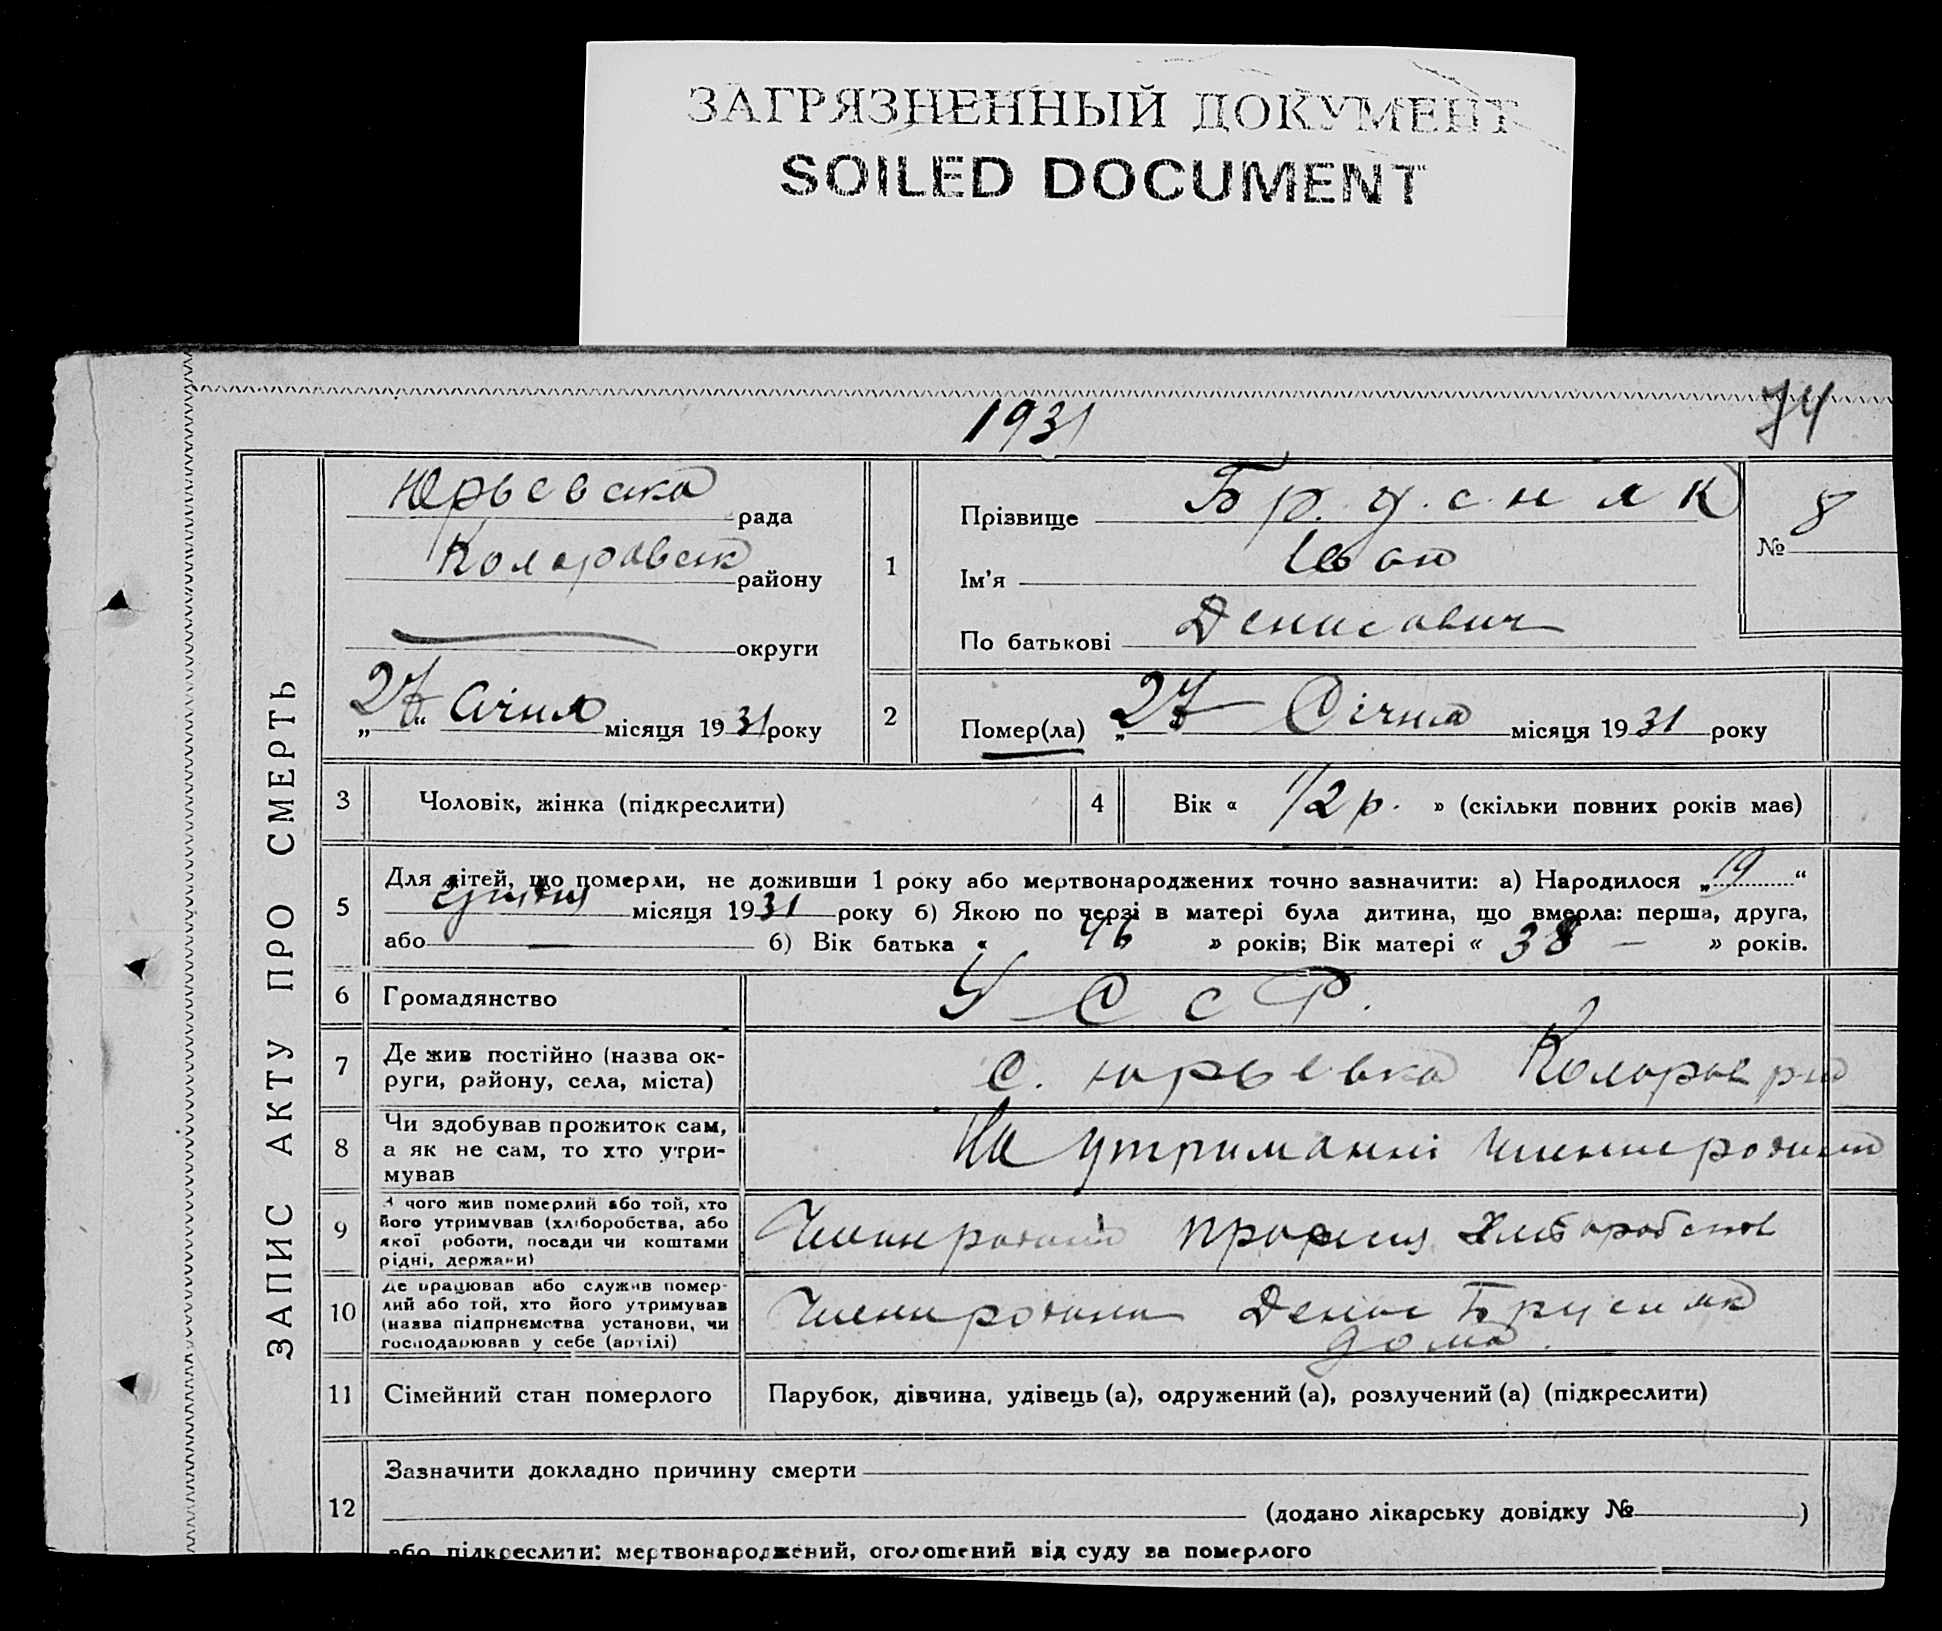 ЗАГРЯЗНЕННЫЙ ДОКУМЕНТ
SOILED DOCUMENT
1931
74
ЗАПИС АКТУ ПРО СМЕРТЬ
Юрьевска рада
Коларовск району
округи
„27“ Січня місяця 1931 року
1
Прізвище Брусняк
Ім'я Іван
По батькові Денисович
№ 8
2
Помер(ла) „27 Січня місяця 1931 року
3 Чоловік, жінка (підкреслити)
4 Вік « 1/2 р. » (скільки повних років має)
5
Для дітей, що померли, не доживши 1 року або мертвонароджених точно зазначити: а) Народилося „19“
місяця 1931 року б) Якою по черзі в матері була дитина, що вмерла: перша, друга,
або — б) Вік батька « 46 » років; Вік матері « 38 — » років.
6 Громадянство УССР.
7 Де жив постійно (назва ок-
руги, району, села, міста)
с. Юрьевка
8
Чи здобував прожиток сам,
а як не сам, то хто утри-
мував
На утриманні
9
З чого жив померлий або той, хто
його утримував (хліборобства, або
якої роботи, посади чи коштами
рідні, держави)
10
Де працював або служив помер-
лий або той, хто його утримував
(назва підприємства установи, чи
господарював у себе (артілі)
Денис Брусняк
дома.
11 Сімейний стан померлого Парубок, дівчина, удівець (а), одружений (а), розлучений (а) (підкреслити)
12
Зазначити докладно причину смерти
(додано лікарську довідку № )
або підкреслити: мертвонароджений, оголошений від суду за померлого